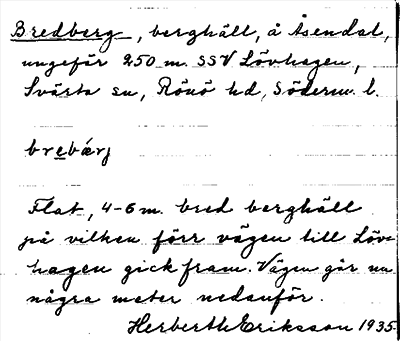 Bredberg, berghäll, å Åsendal,
ungefär 250 m. SSV Lövhagen,
Svärta sn, Rönö hd, Söderm. l.
brebærj
Flat, 4-6 m. bred berghäll
på vilken förr vägen till Löv-
hagen gick fram. Vägen går nu
några meter nedanför.
Herberth Eriksson 1935.